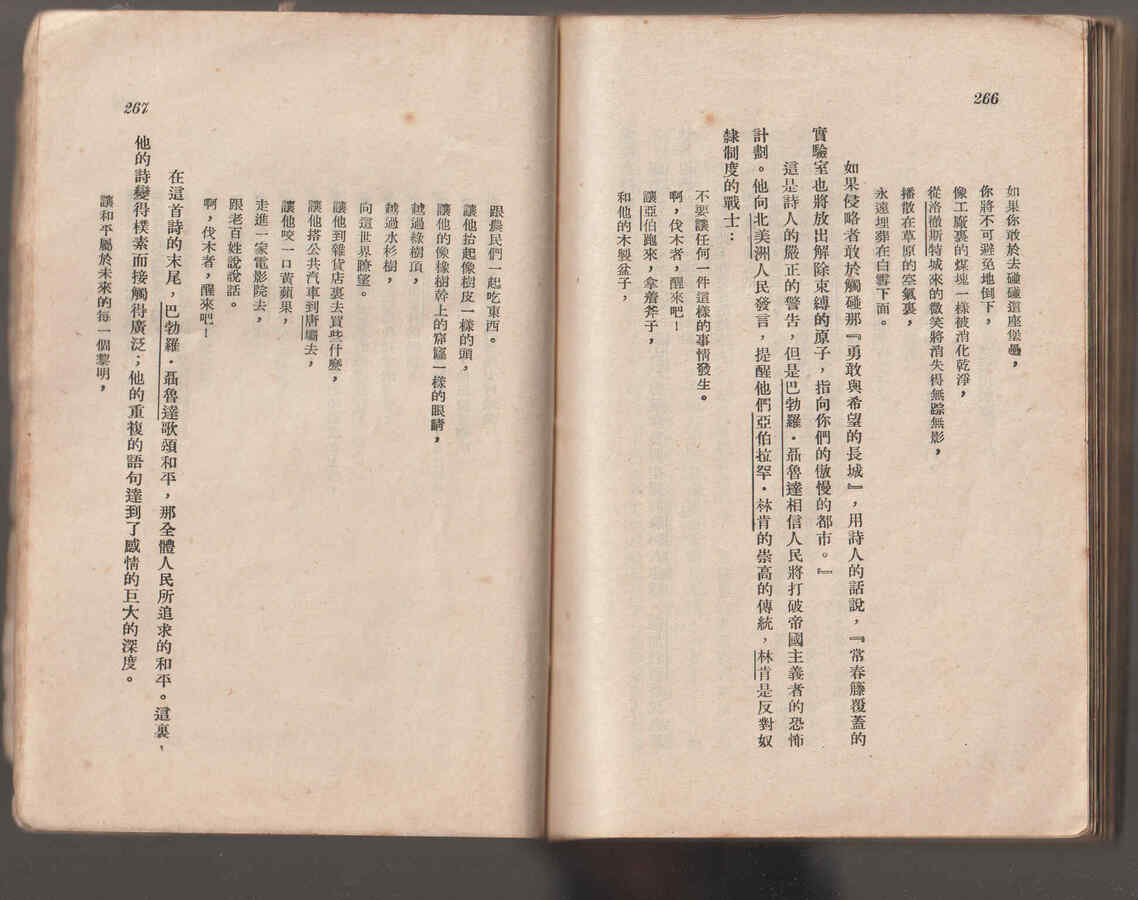 266
如果你敢於去碰碰這座堡壘，
你將不可避免地倒下，
像工廠裏的煤塊一樣被消化乾淨，
從洛徹斯特城來的微笑將消失得無踪無影，
播散在草原的空氣裏，
永遠埋葬在白雪下面。
如果侵略者敢於觸碰那『勇敢與希望的長城』，用詩人的話說，『常春籐覆蓋的
實驗室也將放出解除束縛的原子，指向你們的傲慢的都市。』
這是詩人的嚴正的警告，但是巴勃羅·聶魯達相信人民將打破帝國主義者的恐怖
計劃。他向北美洲人民發言，提醒他們亞伯拉罕·林肯的崇高的傳統，林肯是反對奴
隸制度的戰士：
不要讓任何一件這樣的事情發生。
啊，伐木者，醒來吧！
讓亞伯跑來，拿着斧子，
和他的木製盆子，
267
跟農民們一起吃東西。
讓他抬起像樹皮一樣的頭，
讓他的像橡樹幹上的窟窿一樣的眼睛，
越過綠樹頂，
越過水杉樹，
向這世界瞭望。
讓他到雜貨店裏去買些什麼，
讓他搭公共汽車到唐巖去，
讓他咬一口黃蘋果，
走進一家電影院去，
跟老百姓說說話。
啊，伐木者，醒來吧！
在這首詩的末尾，巴勃羅·聶魯達歌頌和平，那全體人民所追求的和平。這裏，
他的詩變得樸素而接觸得廣泛；他的重複的語句達到了感情的巨大的深度。
讓和平屬於未來的每一個黎明，